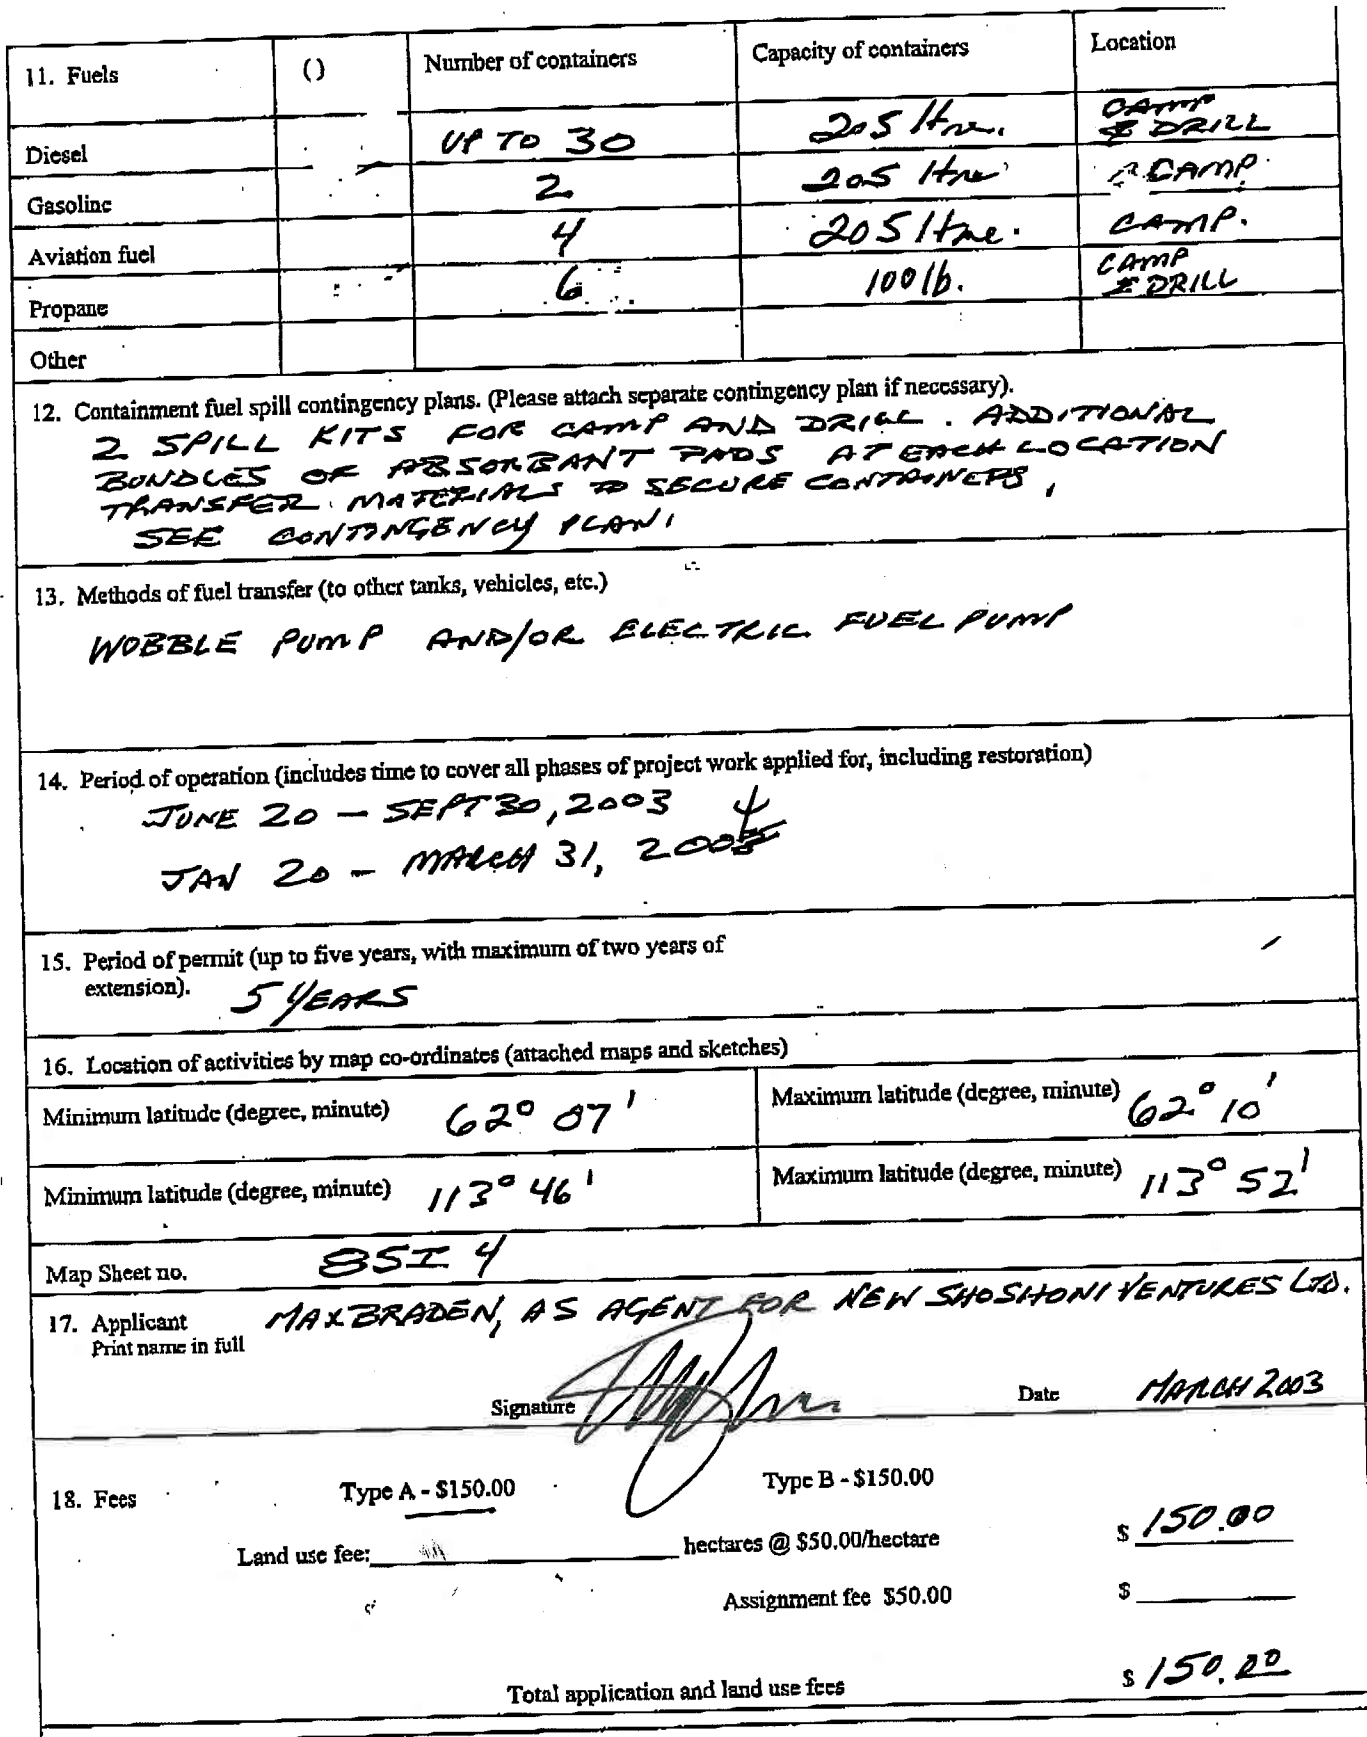 11. Fuels () Number of containers Capacity of containers Location
Diesel UP TO 30 205 litre. CAMP & DRILL
Gasoline 2 205 litre CAMP.
Aviation fuel 4 205 litre. CAMP.
Propane 6 100 lb. CAMP & DRILL
Other
12. Containment fuel spill contingency plans. (Please attach separate contingency plan if necessary).
2 SPILL KITS FOR CAMP AND DRILL. ADDITIONAL
BUNDLES OF ABSORBANT PADS AT EACH LOCATION
TRANSFER MATERIALS TO SECURE CONTAINERS,
SEE CONTINGENCY PLAN.
13. Methods of fuel transfer (to other tanks, vehicles, etc.)
WOBBLE PUMP AND/OR ELECTRIC FUEL PUMP
14. Period of operation (includes time to cover all phases of project work applied for, including restoration)
JUNE 20 - SEPT 30, 2003
JAN 20 - MARCH 31, 2004
15. Period of permit (up to five years, with maximum of two years of
extension). 5 YEARS
16. Location of activities by map co-ordinates (attached maps and sketches)
Minimum latitude (degree, minute) 62° 07' Maximum latitude (degree, minute) 62° 10'
Minimum latitude (degree, minute) 113° 46' Maximum latitude (degree, minute) 113° 52'
Map Sheet no. 85I 4
17. Applicant MAX BRADEN, AS AGENT FOR NEW SHOSHONI VENTURES LTD.
Print name in full
Signature Date MARCH 2003
18. Fees Type A - $150.00 Type B - $150.00
Land use fee: hectares @ $50.00/hectare $ 150.00
Assignment fee $50.00 $
Total application and land use fees $ 150.00